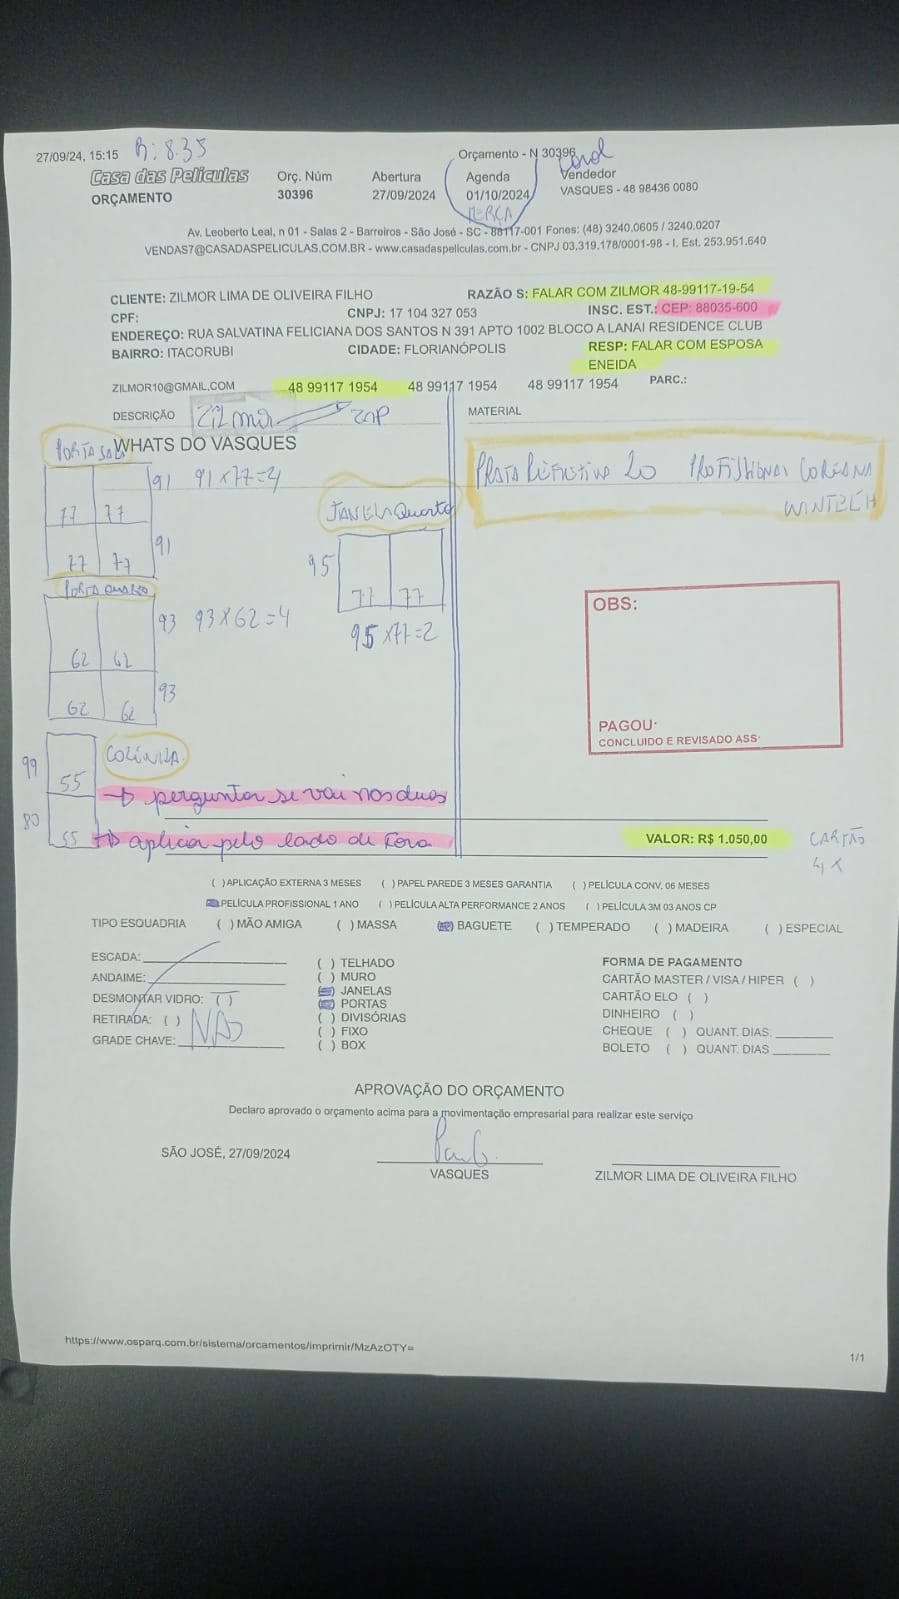 27/09/24, 15:15
R: 8.35
Orçamento - N 30396
Carol
Casa das Películas
ORÇAMENTO
Orç. Núm
30396
Abertura
27/09/2024
Agenda
01/10/2024
TERÇA
Vendedor
VASQUES - 48 98436 0080
Av. Leoberto Leal, n 01 - Salas 2 - Barreiros - São José - SC - 88117-001 Fones: (48) 3240.0605 / 3240.0207
VENDAS7@CASADASPELICULAS.COM.BR - www.casadaspeliculas.com.br - CNPJ 03.319.178/0001-98 - I. Est. 253.951.640
CLIENTE: ZILMOR LIMA DE OLIVEIRA FILHO RAZÃO S: FALAR COM ZILMOR 48-99117-19-54
CPF: CNPJ: 17 104 327 053 INSC. EST.: CEP: 88035-600
ENDEREÇO: RUA SALVATINA FELICIANA DOS SANTOS N 391 APTO 1002 BLOCO A LANAI RESIDENCE CLUB
BAIRRO: ITACORUBI CIDADE: FLORIANÓPOLIS RESP: FALAR COM ESPOSA
ENEIDA
ZILMOR10@GMAIL.COM 48 99117 1954 48 99117 1954 48 99117 1954 PARC.:
DESCRIÇÃO Zilmor ZAP MATERIAL
WHATS DO VASQUES
PORTA SALA
91 91 x 77 = 4
77 77
91
77 77
JANELA Quarto
95
77 77
95 x 77 = 2
PRATA REFLETIVA 20 PROFISSIONAL COREANA
WINTECH
PORTA QUARTO
93 93 x 62 = 4
62 62
93
62 62
OBS:
PAGOU:
CONCLUIDO E REVISADO ASS:
COZINHA
99
55
→ perguntar se vai nos duas
80
55 → aplicar pelo lado de Fora
VALOR: R$ 1.050,00
CARTÃO
4 x
( ) APLICAÇÃO EXTERNA 3 MESES ( ) PAPEL PAREDE 3 MESES GARANTIA ( ) PELÍCULA CONV. 06 MESES
PELÍCULA PROFISSIONAL 1 ANO ( ) PELÍCULA ALTA PERFORMANCE 2 ANOS ( ) PELÍCULA 3M 03 ANOS CP
TIPO ESQUADRIA ( ) MÃO AMIGA ( ) MASSA BAGUETE ( ) TEMPERADO ( ) MADEIRA ( ) ESPECIAL
ESCADA:
ANDAIME:
DESMONTAR VIDRO: ( )
RETIRADA: ( )
GRADE CHAVE:
NÃO
( ) TELHADO
( ) MURO
JANELAS
PORTAS
( ) DIVISÓRIAS
( ) FIXO
( ) BOX
FORMA DE PAGAMENTO
CARTÃO MASTER / VISA / HIPER ( )
CARTÃO ELO ( )
DINHEIRO ( )
CHEQUE ( ) QUANT. DIAS.
BOLETO ( ) QUANT. DIAS
APROVAÇÃO DO ORÇAMENTO
Declaro aprovado o orçamento acima para a movimentação empresarial para realizar este serviço
SÃO JOSÉ, 27/09/2024
VASQUES
ZILMOR LIMA DE OLIVEIRA FILHO
https://www.osparq.com.br/sistema/orcamentos/imprimir/MzAzOTY=
1/1